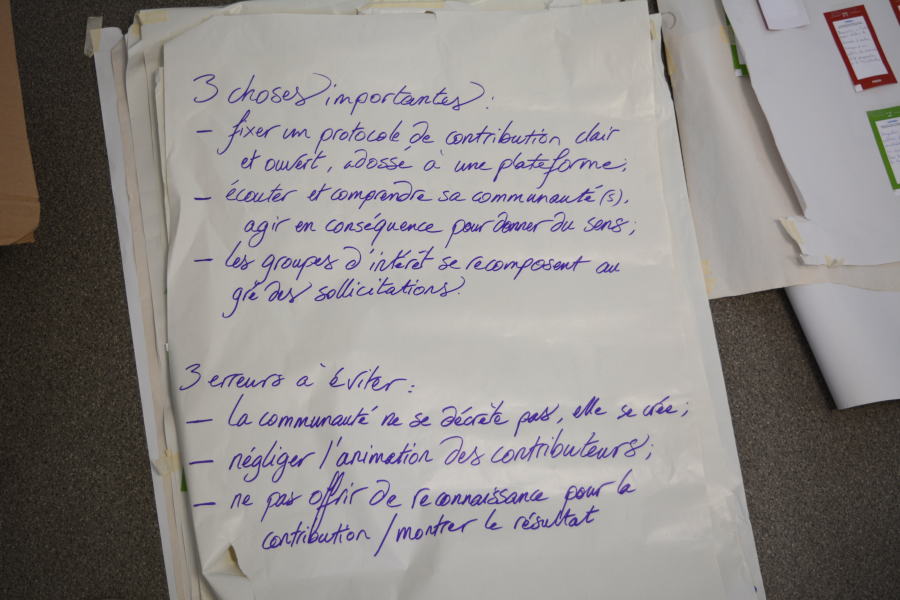 3 choses importantes :
– fixer un protocole de contribution clair
et ouvert, adossé à une plateforme ;
– écouter et comprendre sa communauté(s),
agir en conséquence pour donner du sens ;
– les groupes d'intérêt se recomposent au
gré des sollicitations.
3 erreurs à éviter :
– la communauté ne se décrète pas, elle se crée ;
– négliger l'animation des contributeurs ;
– ne pas offrir de reconnaissance pour la
contribution / montrer le résultat